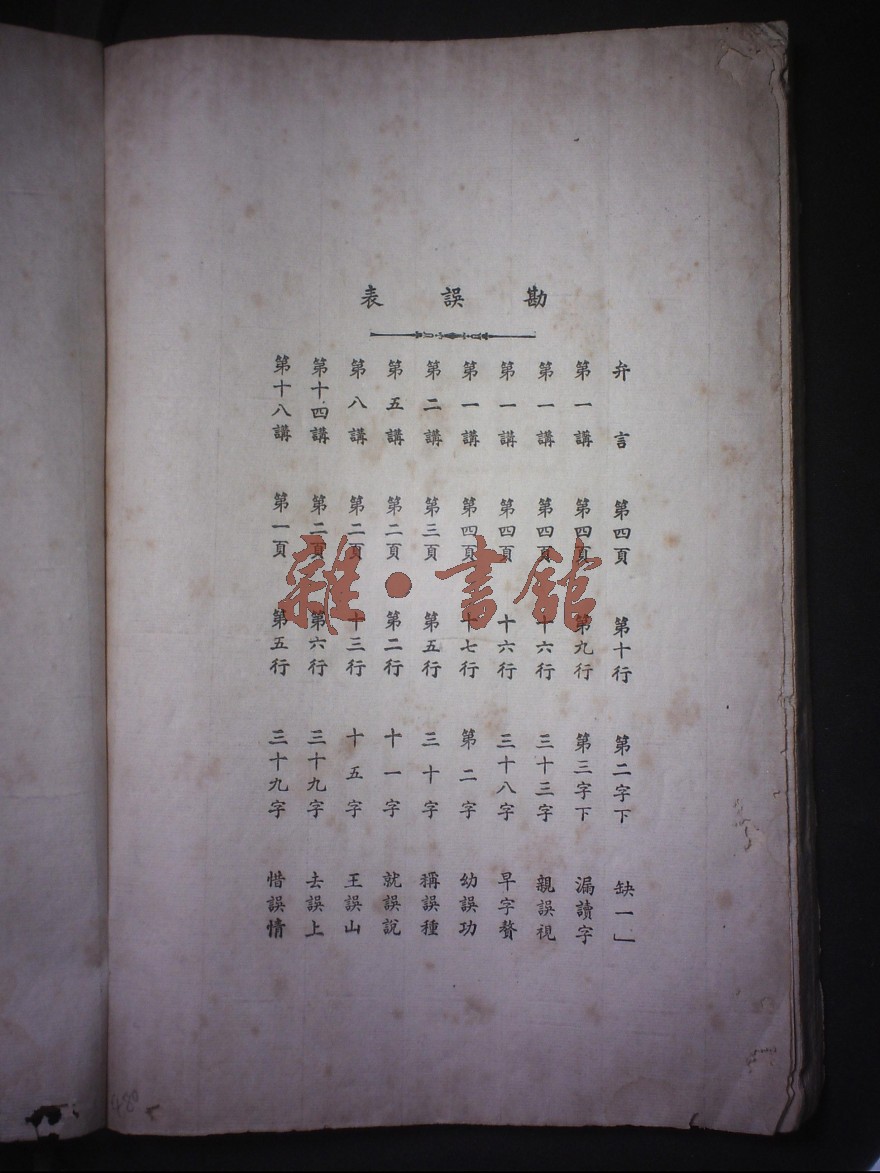 勘誤表
弁言 第四頁 第十行 第二字下 缺一」
第一講 第四頁 第九行 第三字下 漏讀字
第一講 第四頁 十六行 三十三字 親誤視
第一講 第四頁 十六行 三十八字 早字贅
第一講 第四頁 十七行 第二字 幼誤功
第二講 第三頁 第五行 三十字 稱誤種
第五講 第二頁 第二行 十一字 就誤說
第八講 第二頁 十三行 十五字 王誤山
第十四講 第二頁 第六行 三十九字 去誤上
第十八講 第一頁 第五行 三十九字 惜誤情
雜·書館
480